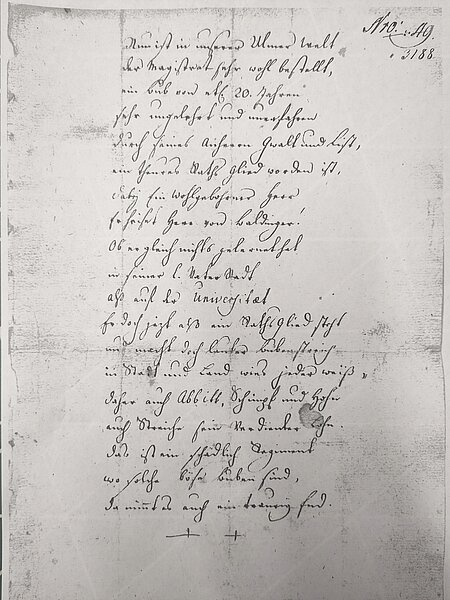 Nro: 49.
3188
Nun ist in unserer Ulmer Welt
der Magistrat sehr wohl bestellt,
ein bub von etl. 20. Jahren
sehr ungelehrt und unerfahren
durch seines Aicherен Gwalt und List,
ein theures Raths Glied worden ist,
daby Ein Wohlgebohrner Herr
Er heiset Herr von Baldinger!
Ob er gleich nichts gelernet hat
in seiner l. Vater Statt
alß auf der Universitæt
Er doch jezt alß ein Raths Glied steht
und macht doch lauter bubenstreich
in Statt und Land wies jeder weiß,
daher auch Abbitt, Schimpf und Hohn
auch Streiche sein Verdienter Lohn.
das ist ein schädlich Regiment
wo solche böse buben sind,
da nimmt es auch ein traurig End.